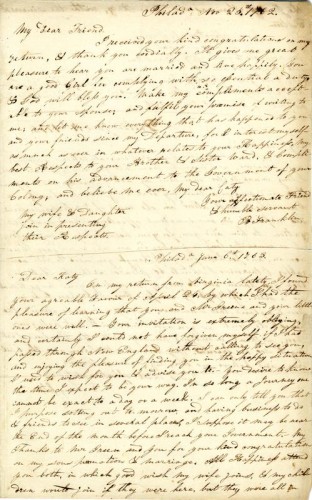 Philada. Nov 25th 1762.
My Dear Friend
I received your kind congratulations on my
return, & thank you cordially. It gives me great
pleasure to hear you are married and live happily. You
are a good Girl for complying with so essential a duty,
& God will bless you. Make my compliments accept-
able to your Spouse; and fulfil your promise of writing to
me, and let me know everything that has happened to you
and your friends since my Departure, for I interest myself
as much as ever in whatever related to your Happiness. My
best Respects to your Brother & Sister Ward, & Compli-
ments on his Advancement to the Government of your
Colony, and believe me ever, My dear Caty
Your affectionate Friend
& humble servant
B. Franklin
My wife & Daughter
join in presenting
their Respects.
Philada. June 6th 1763
Dear Katy
On my return from Virginia lately, I found
your agreeable favour of April 20 by which I had the
pleasure of learning that you and Mr Greene and your little
ones were well. – Your invitation is extremely obliging,
and certainly I could not have forgiven myself, if I had
passed through New England without calling to see you,
and enjoying the pleasure of finding you in the happy situation
I used to wish for you & advise you to. You desire to know
the time I expect to be your way. In so long a Journey one
cannot be exact to a day or a week. I can only tell you that
I purpose setting out to morrow, and having business to do
& friends to see in several places, I suppose it may be near
the End of the month before I reach your Government. My
Thanks to Mr Greene and you for your kind congratulations
on my sons promotion & marriage. All Happiness attend
you both, in which wish my wife joins, & my chil-
dren would join if they were here, but they were all